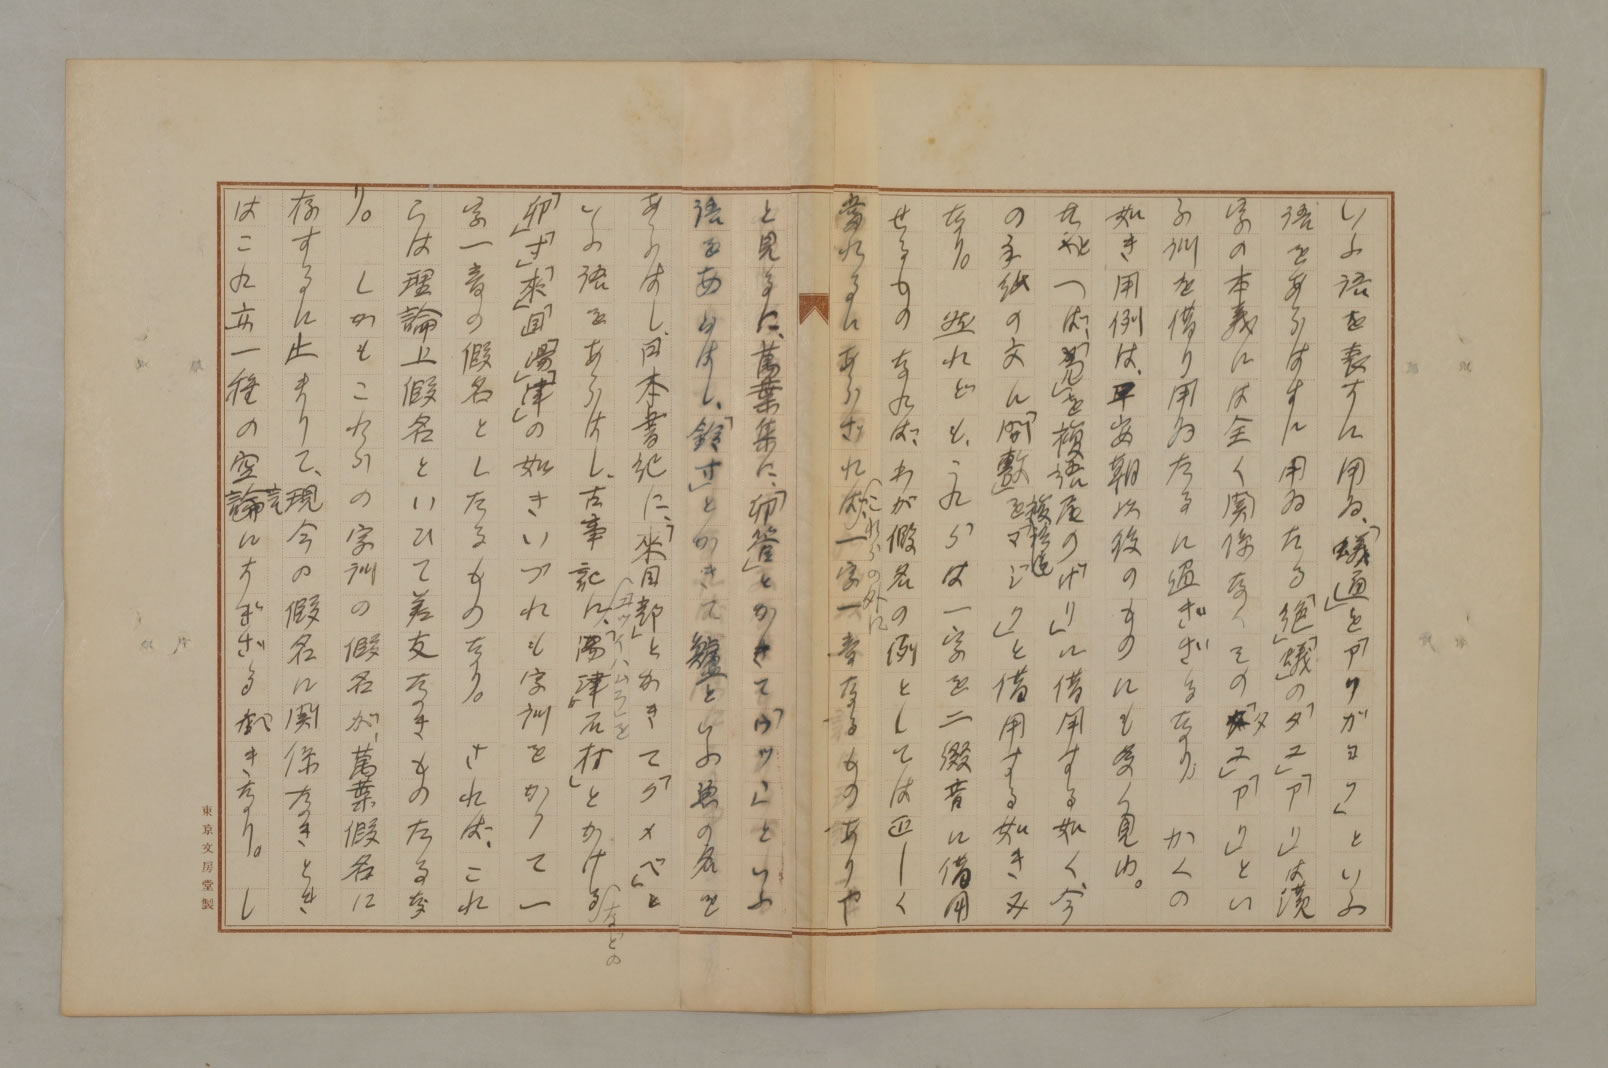 いふ語を表すに用ゐ、「蟻通」を「アリガヨフ」といふ
語をあらはすに用ゐたる「絶」「蟻」の「タユ」「アリ」は漢
字の本義には全く関係なくその「タユ」「アリ」とい
ふ訓を借り用ゐたるに過ぎざるなり。かくの
如き用例は、平安朝以後のものにも多く見ゆ。
の手紙の文に「間敷」を「マジク」と借用する如きみ
なり。然れども、これらは一字を二綴音に借用
せるものなれば、わが假名の例としては正しく
當れるにあらざれば、一字一音なるものありや
(これらの外に
と見るに、萬葉集に、「卯管」とかきて「ウツツ」といふ
語をあらはし、「鈴寸」とかきて鱸といふ魚の名を
あらはし、日本書紀に、「來目部」とかきて「クメベ」と
いふ語をあらはし、古事記に、「湯津石村」とかける
(ユツイハムラ)を
(などの
「卯」「寸」「來」「目」「湯」「津」の如きいづれも字訓をかりて一
字一音の假名としたるものなり。されば、これ
らは理論上假名といひて差支なきものたるな
り。しかもこれらの字訓の假名が、萬葉假名に
存するに止まりて、現今の假名に関係なきとき
はこれ亦一種の空論にすぎざるべきなり。し
言
東京文房堂製